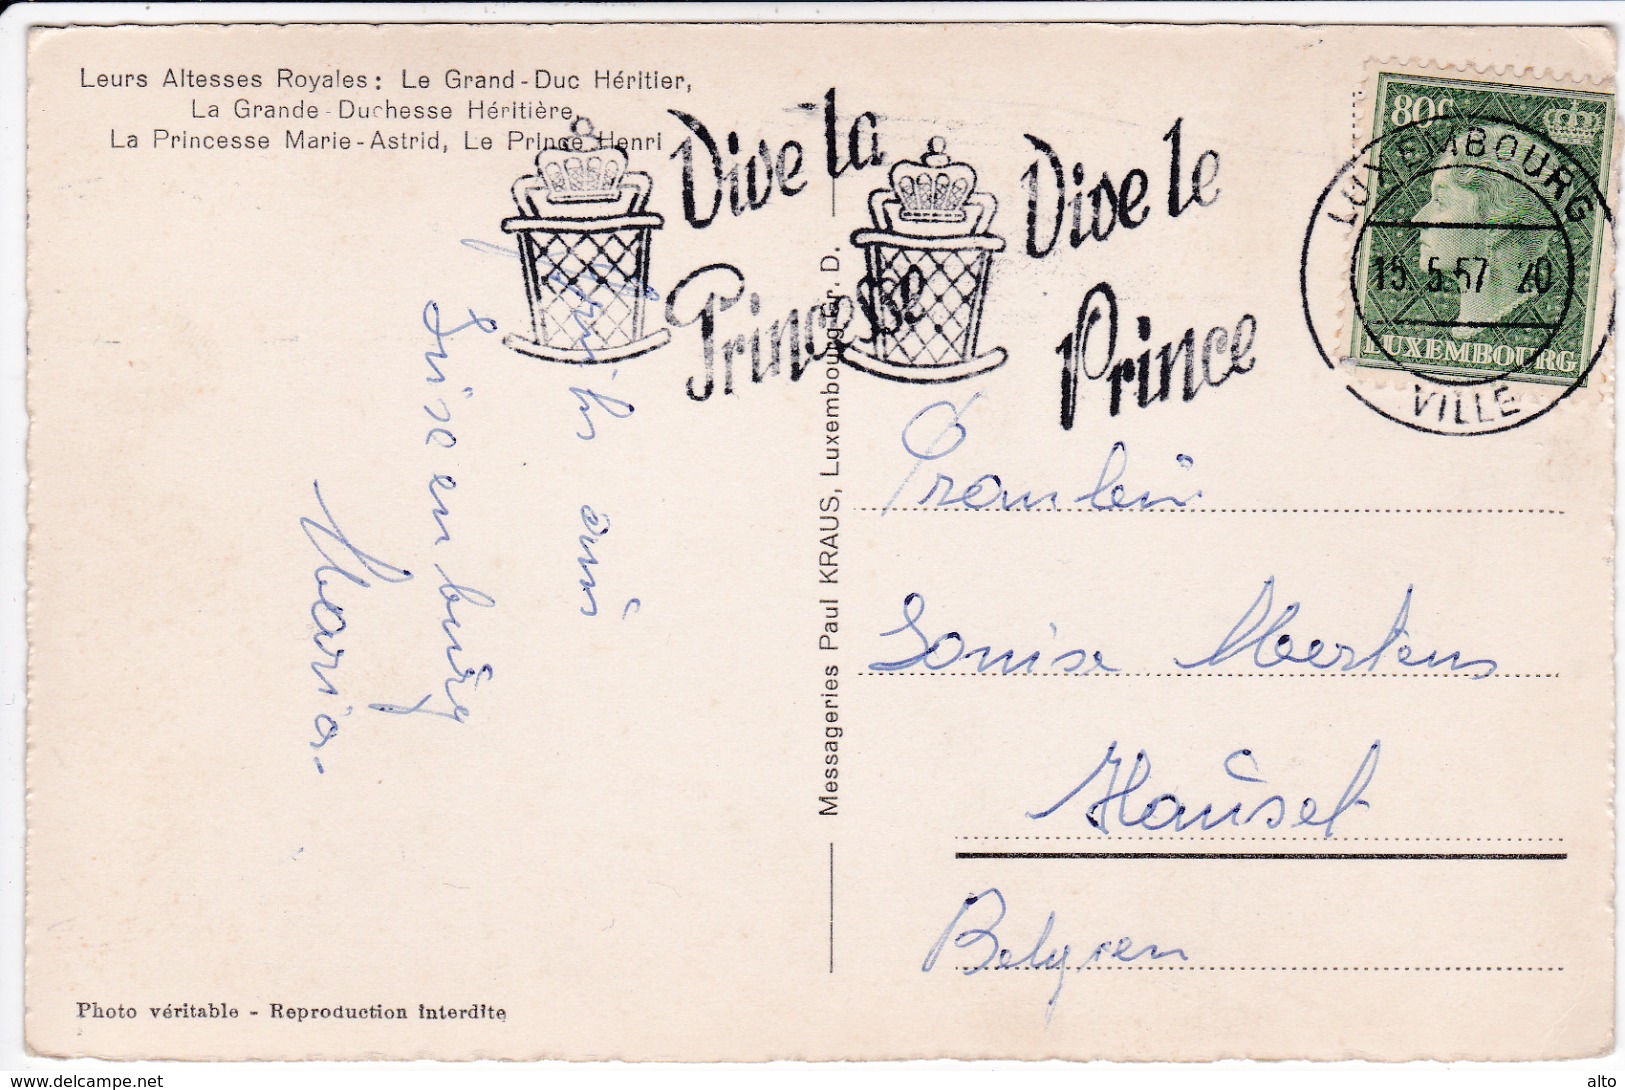 Leurs Altesses Royales: Le Grand-Duc Héritier,
La Grande-Duchesse Héritière,
La Princesse Marie-Astrid, Le Prince Henri
Vive la
Princesse
Vive le
Prince
80c
LUXEMBOURG
LUXEMBOURG
15.5.57 20
VILLE
aus
Luxemburg
Maria.
Messageries Paul KRAUS, Luxembourg-Gr. D.
Fräulein
Louise Mertens
Hauset
Belgien
Photo véritable - Reproduction interdite
delcampe.net
alto